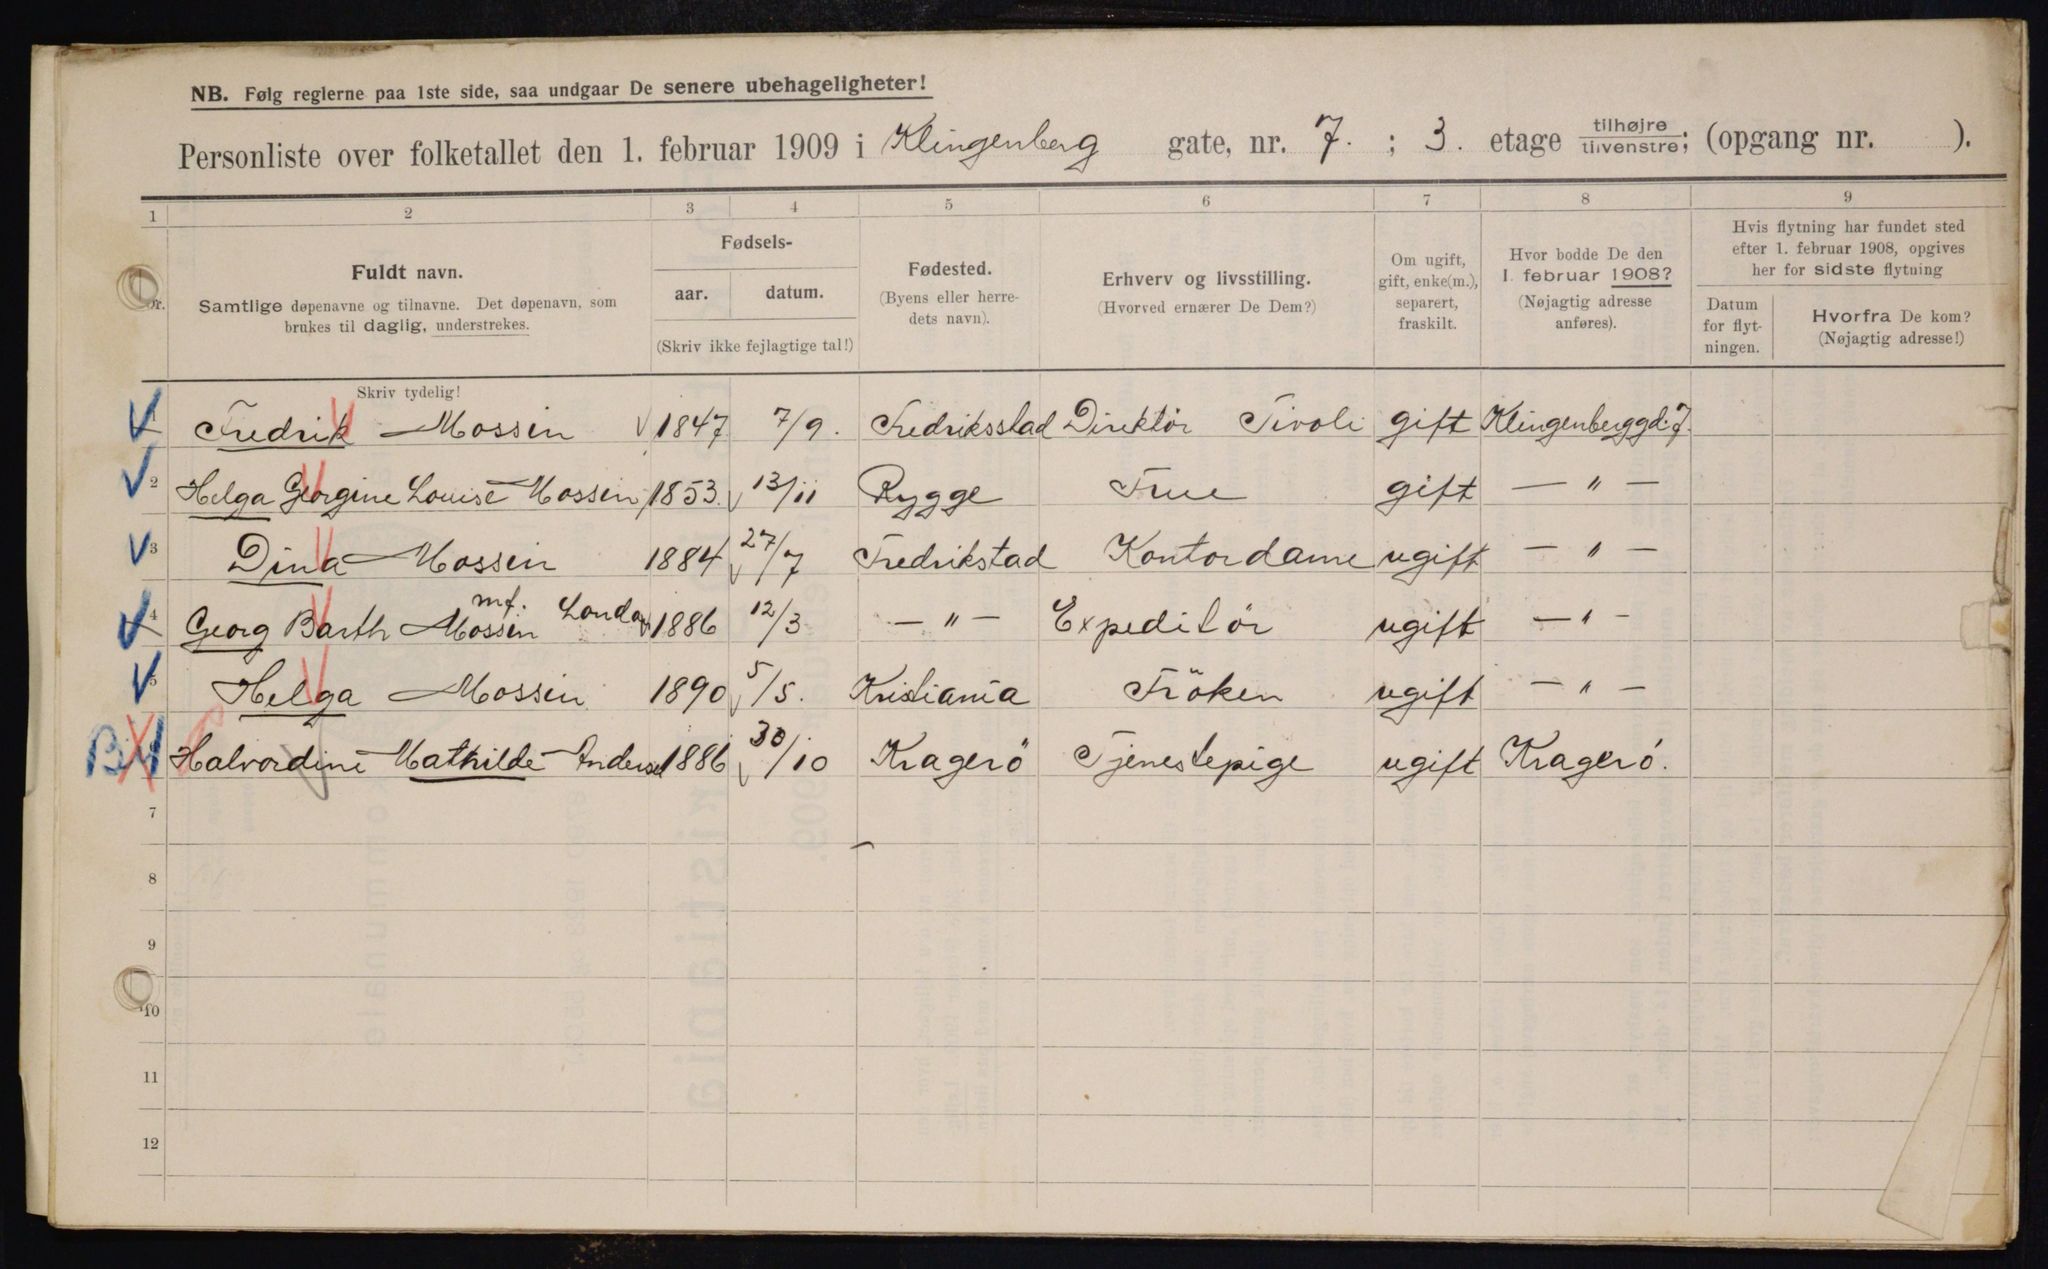 NB. Følg reglerne paa 1ste side, saa undgaar De senere ubehageligheter!
Personliste over folketallet den 1. februar 1909 i Klingenberg gate, nr. 7. ; 3. etage tilhøjre tilvenstre; (opgang nr. ).
1 2 3 4 5 6 7 8 9
Nr.
Fuldt navn.
Samtlige døpenavne og tilnavne. Det døpenavn, som
brukes til daglig, understrekes.
Fødsels-
aar. datum.
(Skriv ikke fejlagtige tal!)
Fødested.
(Byens eller herre-
dets navn).
Erhverv og livsstilling.
(Hvorved ernærer De Dem?)
Om ugift,
gift, enke(m.),
separert,
fraskilt.
Hvor bodde De den
1. februar 1908?
(Nøjagtig adresse
anføres).
Hvis flytning har fundet sted
efter 1. februar 1908, opgives
her for sidste flytning
Datum
for flyt-
ningen.
Hvorfra De kom?
(Nøjagtig adresse!)
Skriv tydelig!
1 Fredrik Mossin 1847 7/9. Fredriksstad Direktör Tivoli gift Klingenberggd. 7.
2 Helga Georgine Louise Mossin 1853. 13/11 Rygge Frue gift — " —
3 Dina Mossin 1884 27/7 Fredrikstad Kontordame ugift — " —
4 Georg Barth Mossin mf. 1886 12/3 — " — Expeditör ugift — " —
5 Helga Mossin 1890 5/5. Kristiania Fröken ugift — " —
Halvordine Mathilde Andersen 1886 30/10 Kragerö Tjenestepige ugift Kragerö.
7
8
9
10
11
12